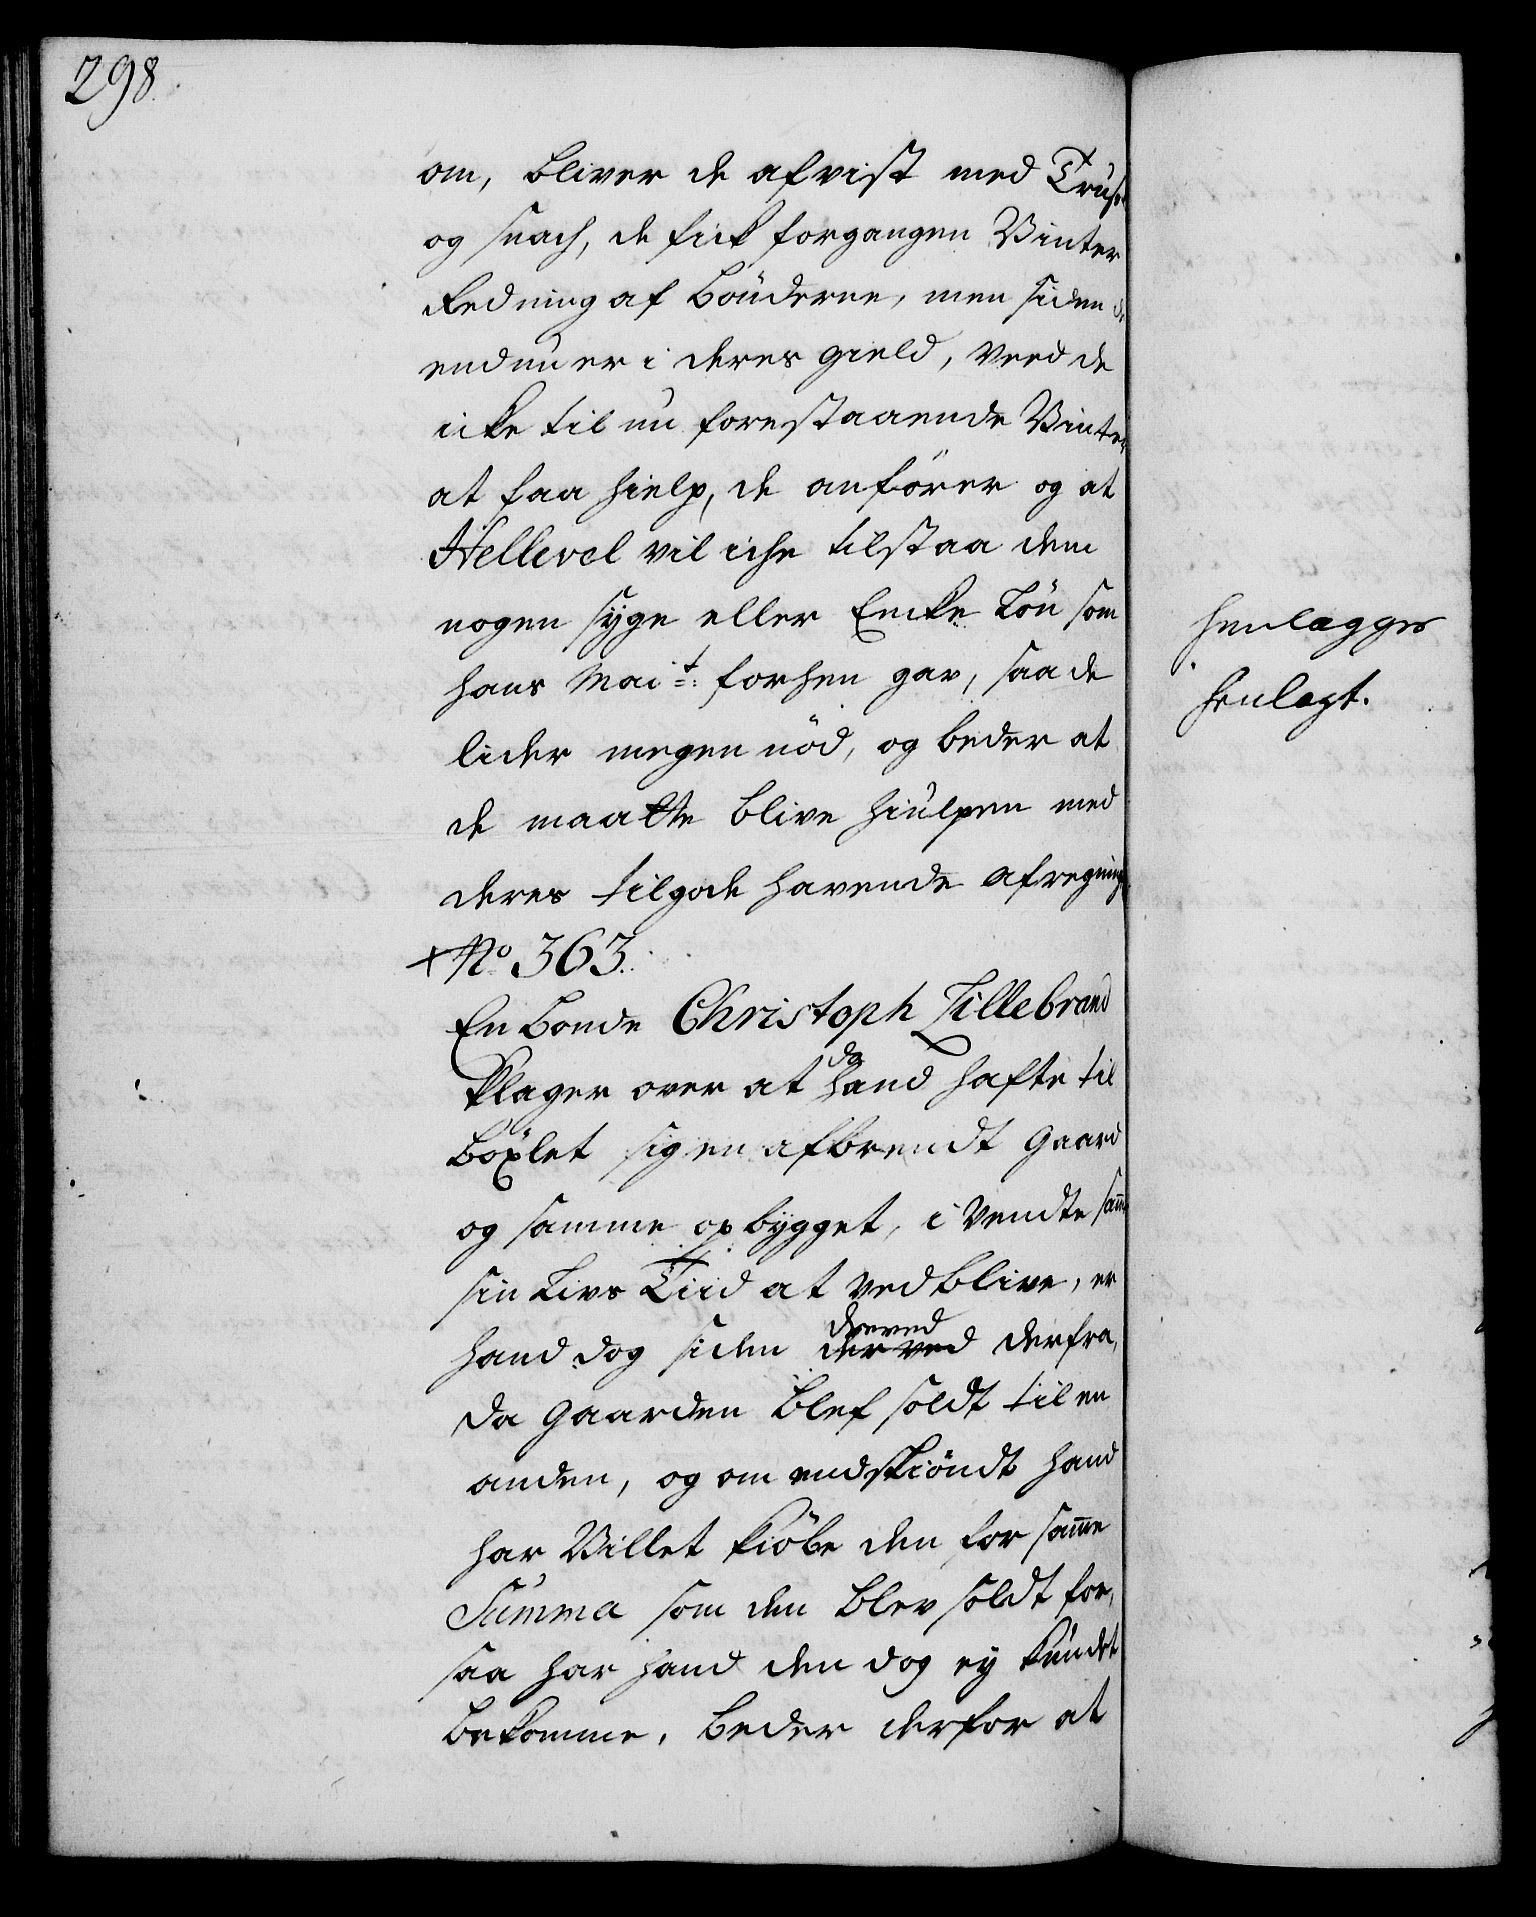 298.
om, bliver de afvist med Trusel
og snach, de fick forgangen Vinter
Redning af bönderne, men siden de
endnu er i deres gield, veed de
icke til nu forestaaende Vinter
at faa hielp, de anförer og at
Hellevel vil iche tilstaa dem
nogen syge eller Encke Lön som
hans Mait: forhen gav, saa de
lider megen nöd, og beder at
de maatte blive hiulpen med
deres tilgode havende afregning
+ No 363.
En bonde Christoph Zillebrand
klager over at da hand hafte til
böxlet sig en afbrendt gaard
og samme opbygget, i vendte samme
sin Livs Tiid at vedblive, er
hand dog siden dreved derfra,
da gaarden blef soldt til en
anden, og om endskiöndt hand
har Villet kiöbe den for samme
Summa som den blev soldt for,
saa har hand den dog ey kundet
bekomme, beder derfor at
henlægges
henlagt.